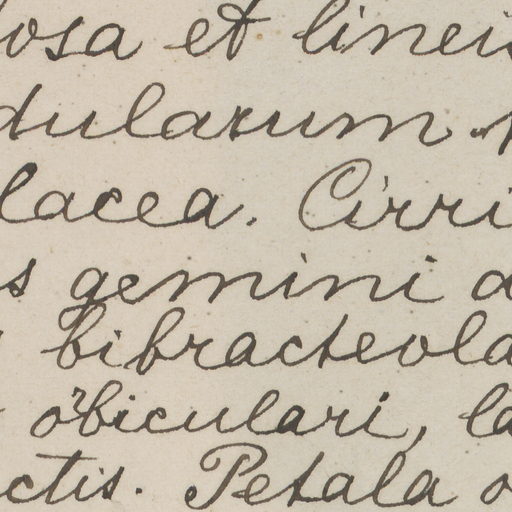 osa et lineis
dularum
lacea. Cirri
s gemini d
bibracteola
orbiculari, la
ctis. Petala o